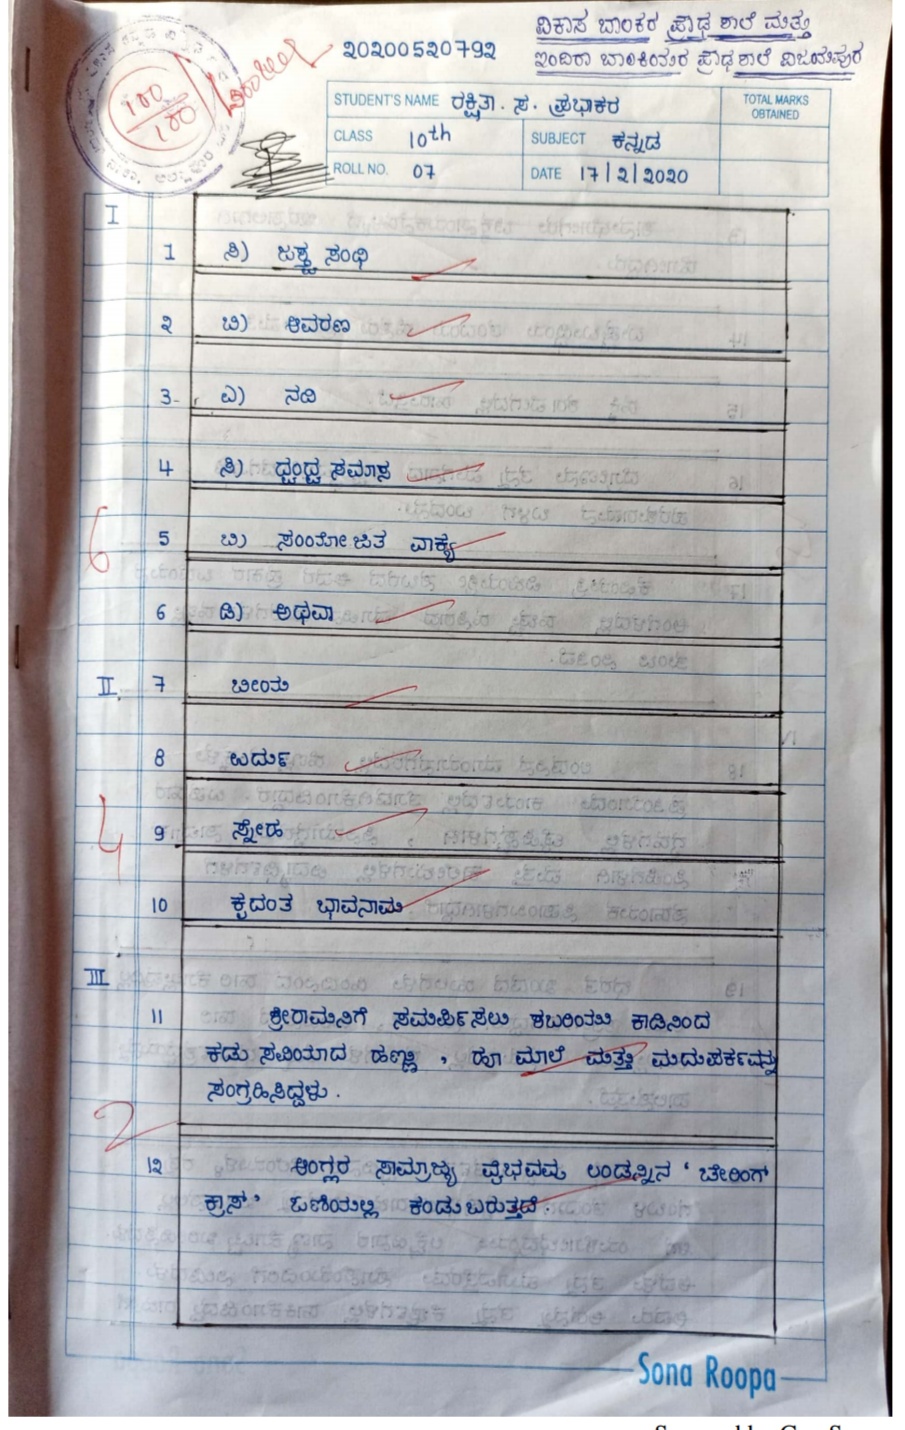 ವಿಕಾಸ ಬಾಲಕರ ಪ್ರೌಢ ಶಾಲೆ ಮತ್ತು
೨೦೨೦೦೫೨೦೭೯೨
ಇಂದಿರಾ ಬಾಲಕಿಯರ ಪ್ರೌಢ ಶಾಲೆ ವಿಜಯಪುರ
100/100
STUDENT'S NAME ರಕ್ಷಿತಾ. ಸ. ಪ್ರಭಾಕರ
TOTAL MARKS OBTAINED
CLASS 10th SUBJECT ಕನ್ನಡ
ROLL NO. 07 DATE 17/2/2020
I
1 ಸಿ) ಜಶ್ತ್ವ ಸಂಧಿ
೨ ಬಿ) ಆವರಣ
3 ಎ) ನದಿ
4 ಸಿ) ದ್ವಂದ್ವ ಸಮಾಸ
6
5 ಬಿ) ಸಂಯೋಜಿತ ವಾಕ್ಯ
6 ಡಿ) ಅಥವಾ
II. 7 ಬೀಯ
8 ಬರ್ದು
4
9 ಸ್ನೇಹ
10 ಕೃದಂತ ಭಾವನಾಮ
III
11 ಶ್ರೀರಾಮನಿಗೆ ಸಮರ್ಪಿಸಲು ಶಬರಿಯು ಕಾಡಿನಿಂದ
ಕಡು ಸವಿಯಾದ ಹಣ್ಣು , ಹೂ ಮಾಲೆ ಮತ್ತು ಮದುಪರ್ಕವನ್ನು
ಸಂಗ್ರಹಿಸಿದ್ದಳು .
2
1೨ ಆಂಗ್ಲರ ಸಾಮ್ರಾಜ್ಯ ವೈಭವವು ಲಂಡನ್ನಿನ ' ಚೇರಿಂಗ್
ಕ್ರಾಸ್ ' ಓಣಿಯಲ್ಲಿ ಕಂಡು ಬರುತ್ತದೆ .
Sona Roopa